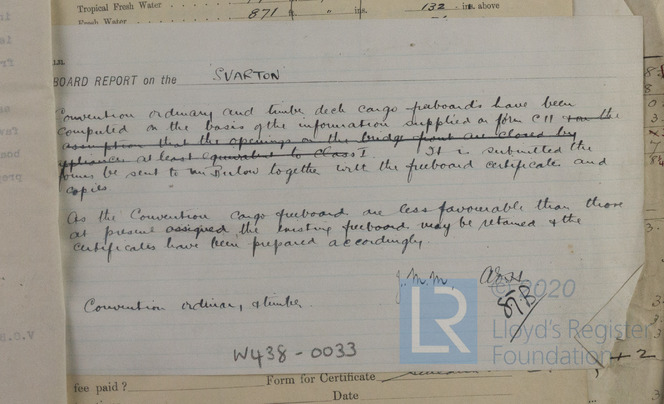 Tropical Fresh Water
871 ft. ins. 132 ins. above
Fresh Water
BOARD REPORT on the SVARTON
Convention ordinary and timber deck cargo freeboards have been
computed on the basis of the information supplied on form C11 + on the
assumption that the openings on the bridge front are closed by
appliances at least equivalent to Class I. It is submitted the
forms be sent to Mr Burlow together with the freeboard certificate and
copies.
As the Convention cargo freeboard are less favourable than those
at present assigned the existing freeboard may be retained & the
certificates have been prepared accordingly.
J.M.M.
Convention ordinary & timber.
© 2020
LR
Lloyd's Register
Foundation
W438-0033
+ 2
fee paid?
Form for Certificate
Date